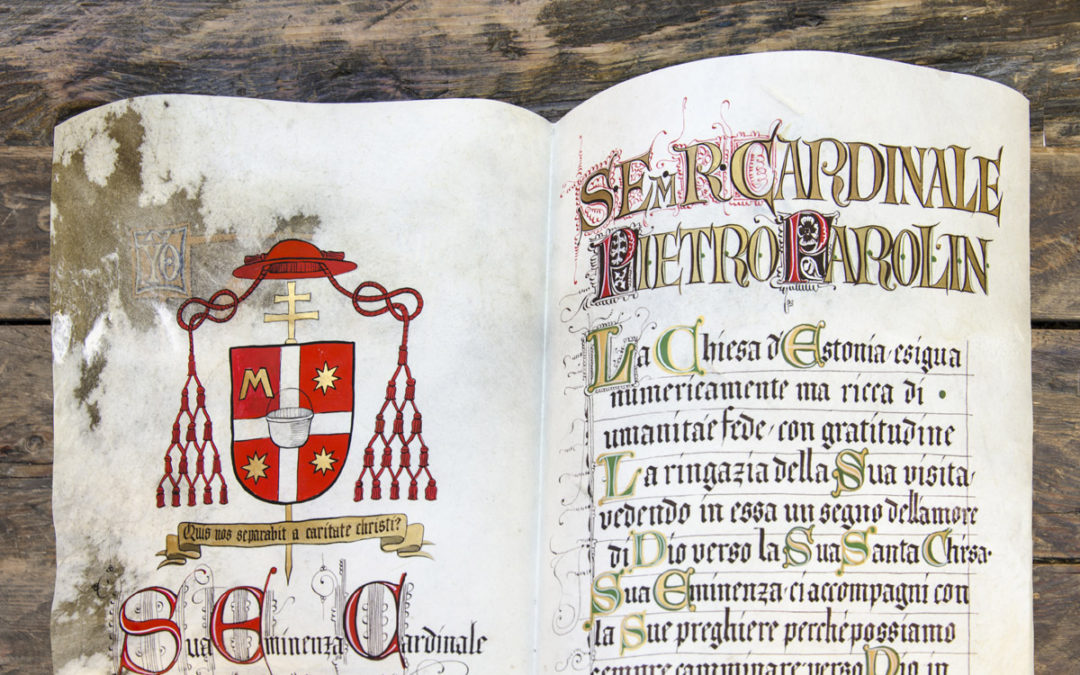 M
Quis nos separabit a caritate christi?
Sua Eminenza Cardinale
S·Em·R·Cardinale
Pietro Parolin
La Chiesa d'Estonia, esigua
numericamente ma ricca di
umanita e fede, con gratitudine
La ringazia della Sua visita,
vedendo in essa un segno dell'amore
di Dio verso la Sua Santa Chirsa.
Sua Eminenza, ci accompagni con
la Sue preghiere perché possiamo
sempre camminare verso Dio in